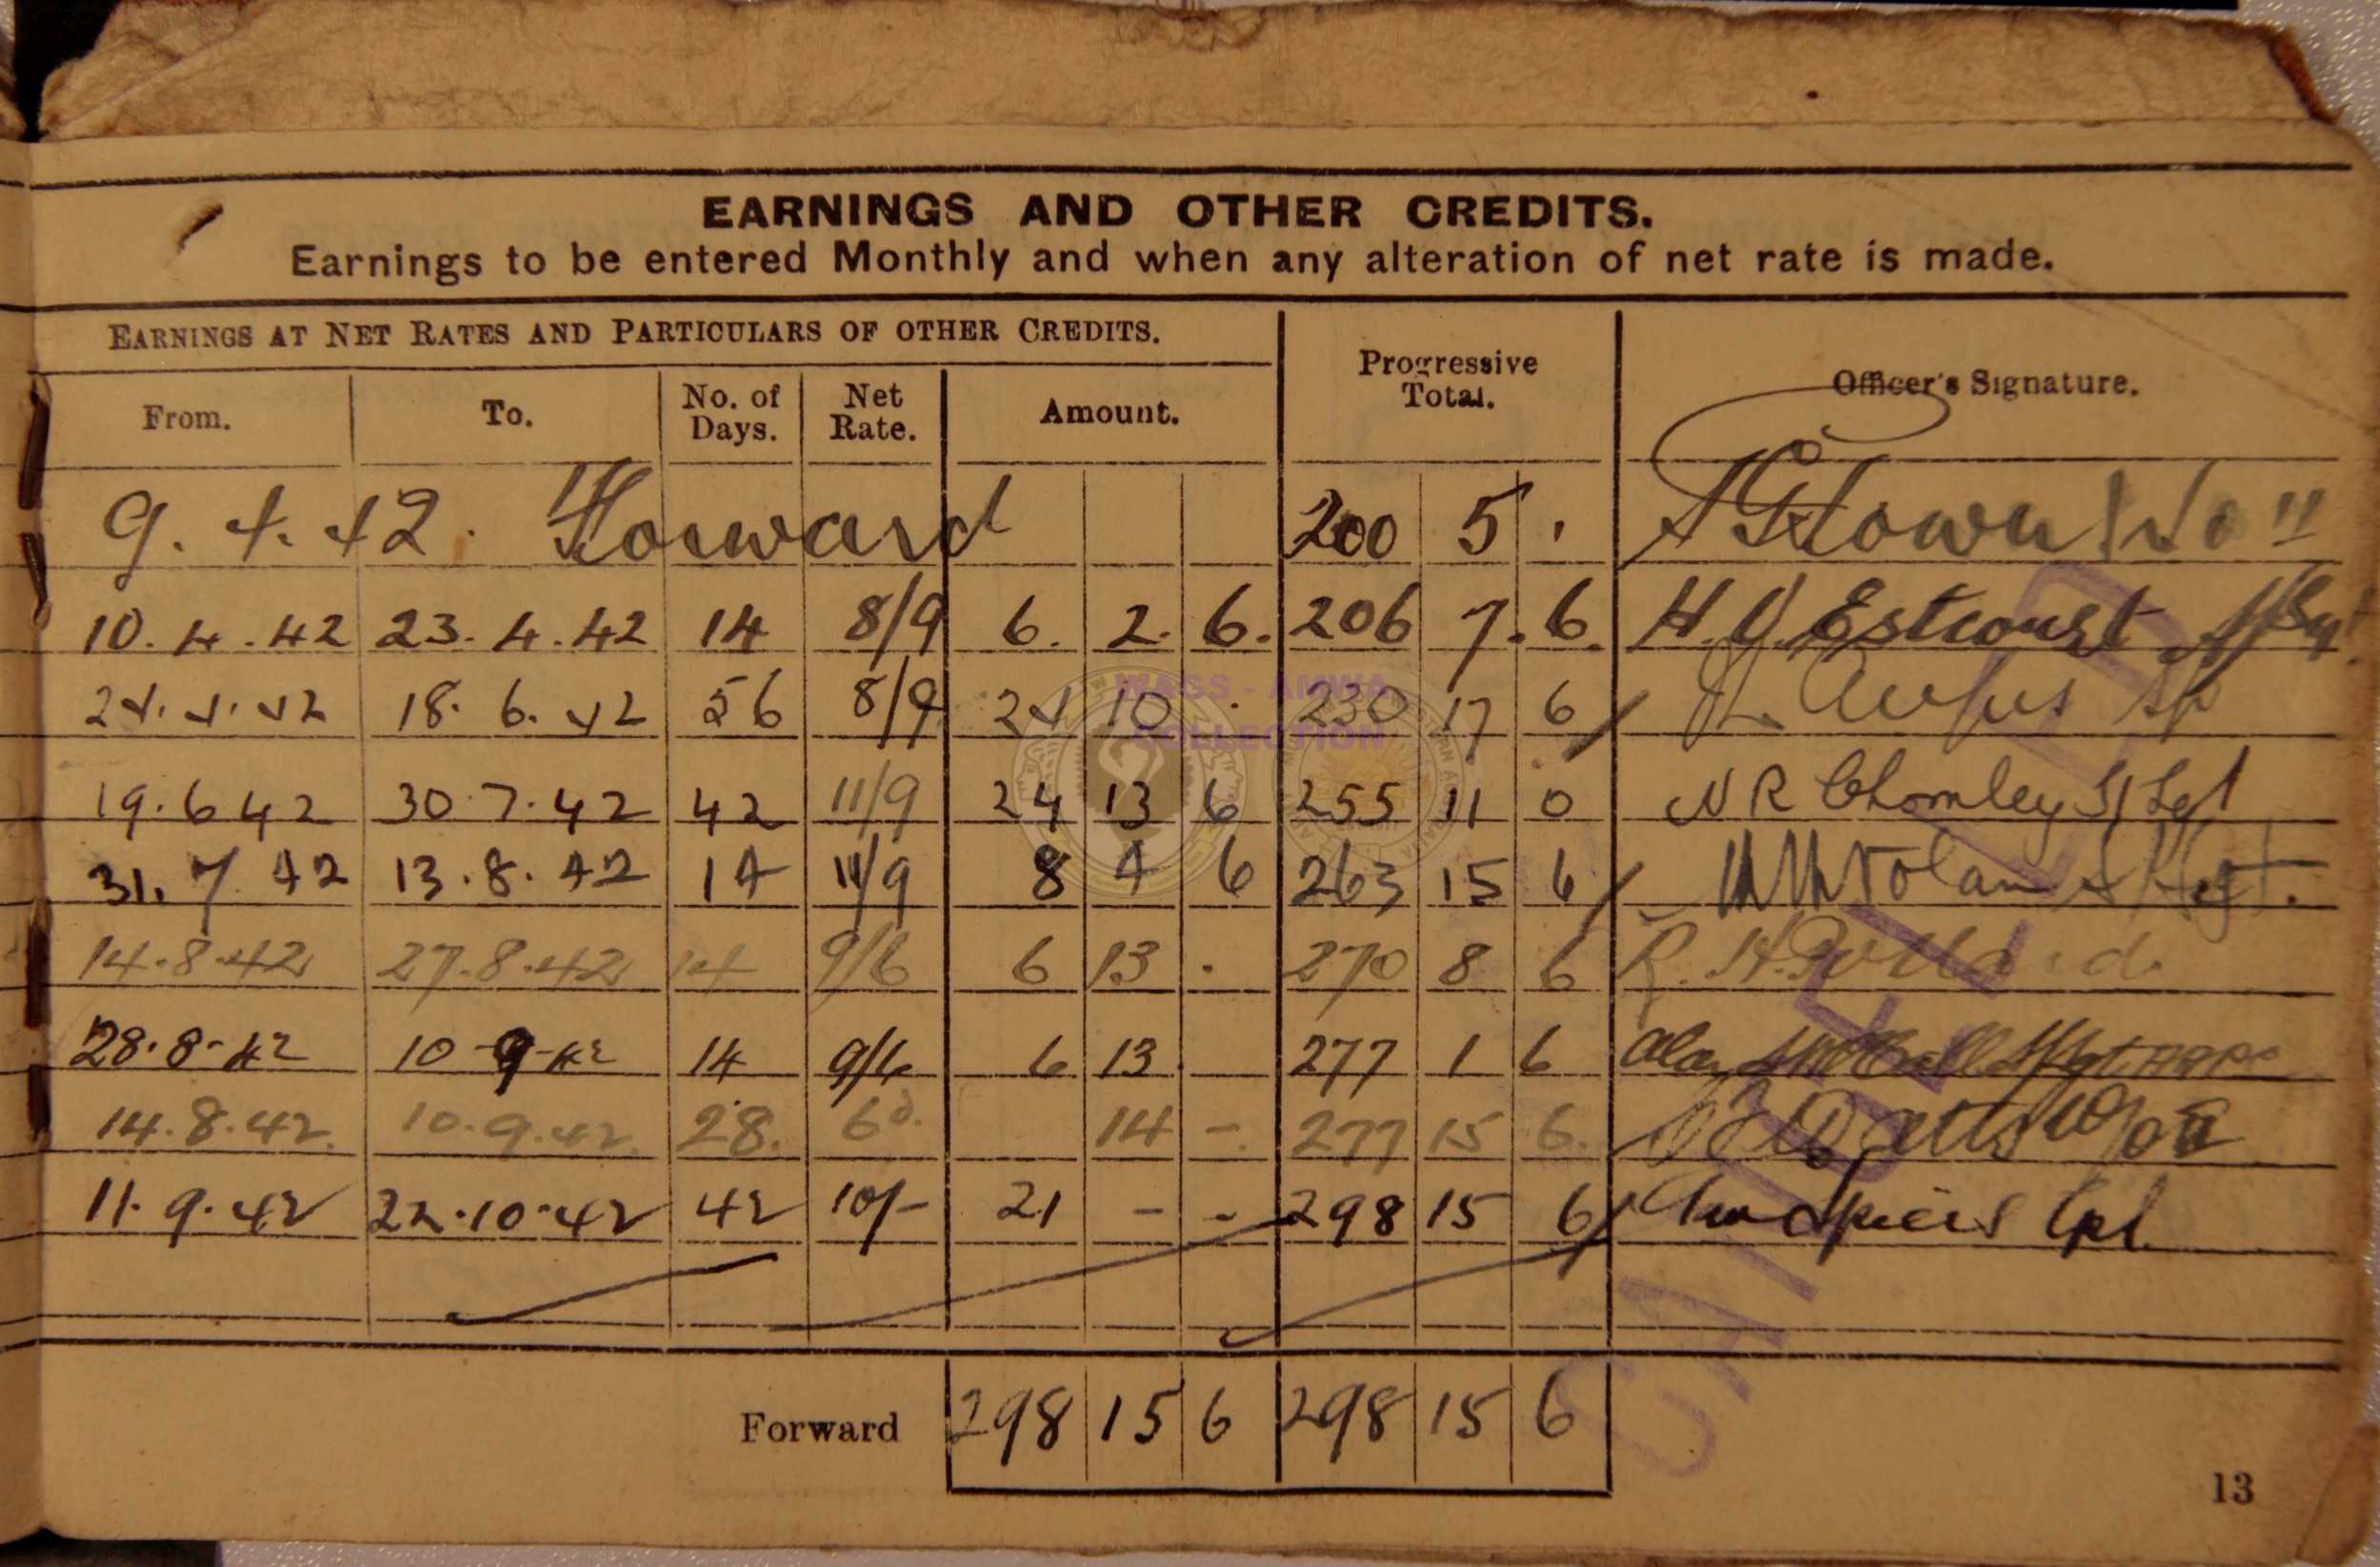 EARNINGS AND OTHER CREDITS.
Earnings to be entered Monthly and when any alteration of net rate is made.
EARNINGS AT NET RATES AND PARTICULARS OF OTHER CREDITS.
Progressive Total.
Officer's Signature.
From. To. No. of Days. Net Rate. Amount.
9.4.42. Forward 200 5 .
10.4.42 23.4.42 14 8/9 6. 2. 6. 206 7. 6. H. J. Estcourt
24.4.42 18.6.42 56 8/9 24 10 . 230 17 6
WAGS - AMWA
COLLECTION
19.6 42 30.7.42 42 11/9 24 13 6 255 11 0 N R Chomley S/Sgt
31.7 42 13.8.42 14 11/9 8 4 6 263 15 6 Nolan S/Sgt.
14.8.42 27.8.42 14 9/6 6 13 . 270 8 6 R. H. Pollard
28.8-42 10-9-42 14 9/6 6 13 . 277 1 6 Alan
14.8.42. 10.9.42. 28. 6d. 14 -. 277 15 6. Watts
11.9.42 22.10.42 42 10/- 21 - - 298 15 6 Spiers Cpl
Forward 298 15 6 298 15 6
13